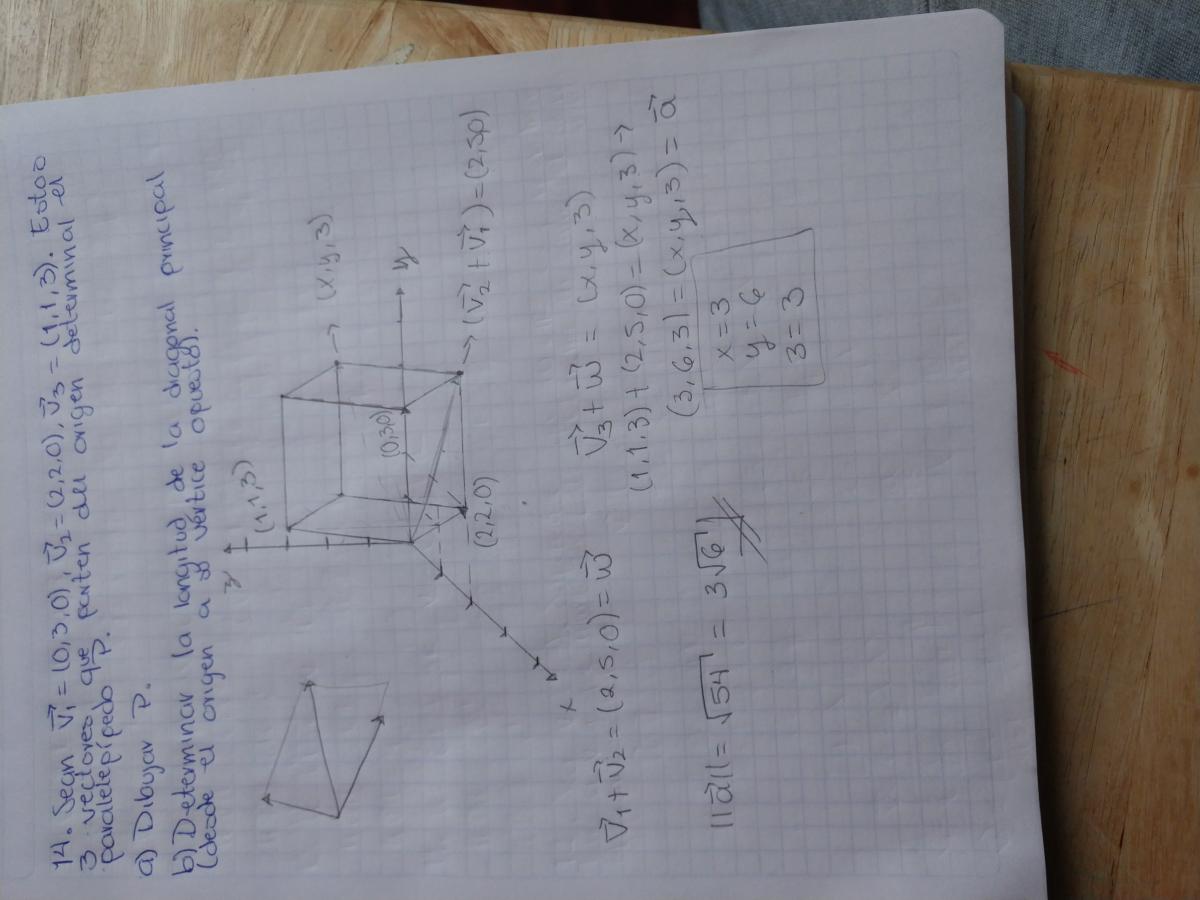 14. Sean v⃗₁ = (0,3,0), v⃗₂ = (2,2,0), v⃗₃ = (1,1,3). Estos
3 vectores que parten del origen determinal el
paralelepípedo P.
a) Dibujar P.
b) Determinar la longitud de la diagonal principal
(desde el origen a vértice opuesto).
z
(1,1,3)
→ (x,y,3)
(0,3,0)
y
(2,2,0)
→ (v⃗₂ + v⃗₁) = (2,5,0)
x
v⃗₁ + v⃗₂ = (2,5,0) = w⃗
v⃗₃ + w⃗ = (x,y,3)
(1,1,3) + (2,5,0) = (x,y,3) →
(3,6,3) = (x,y,3) = a⃗
x = 3
y = 6
3 = 3
||a⃗|| = √54 = 3√6